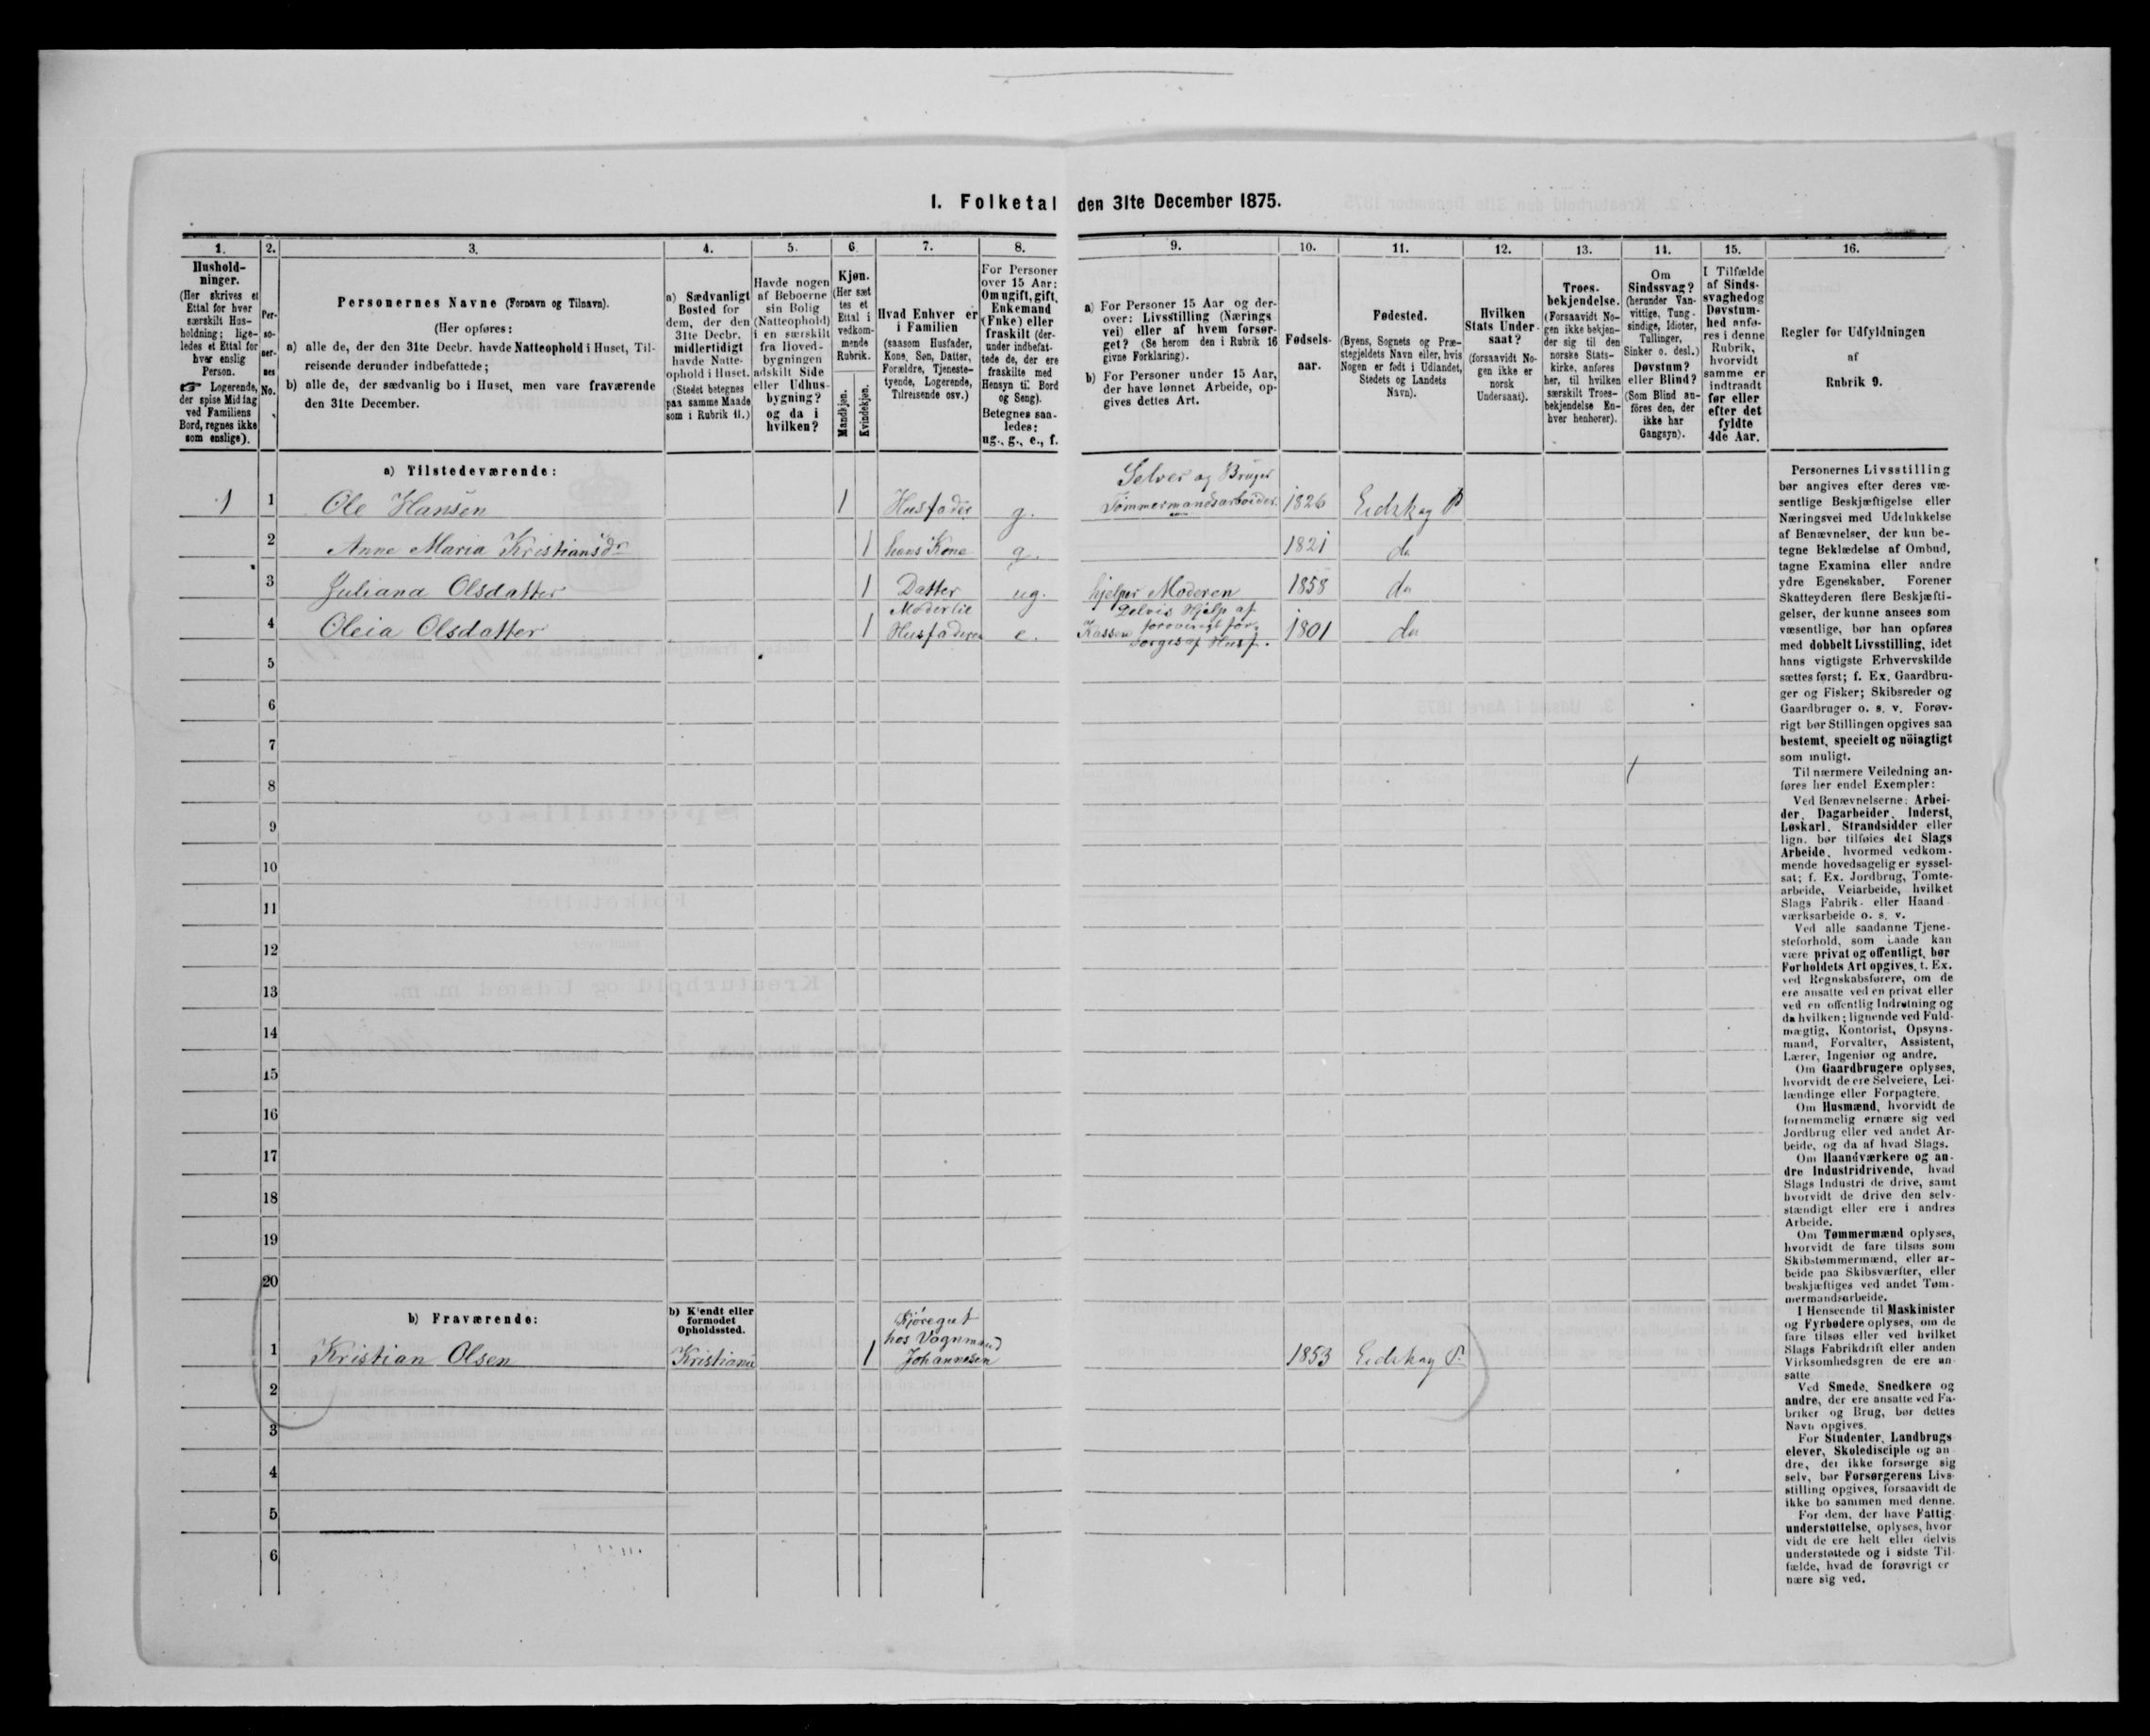 1. Folketal den 31te December 1875.
1.
Hushold-
ninger.
(Her skrives et
Ettal for hver
særskilt Hus-
holdning; lige-
ledes et Ettal for
hver enslig
Person.
☞ Logerende,
der spise Midtag
ved Familiens
Bord, regnes ikke
som enslige).
2.
Per-
so-
ner-
nes
No.
3.
Personernes Navne (Fornavn og Tilnavn).
(Her opføres:
a) alle de, der den 31te Decbr. havde Natteophold i Huset, Til-
reisende derunder indbefattede;
b) alle de, der sædvanlig bo i Huset, men vare fraværende
den 31te December.
4.
a) Sædvanligt
Bosted for
dem, der den
31te Decbr.
midlertidigt
havde Natte-
ophold i Huset.
(Stedet betegnes
paa samme Maade
som i Rubrik 11.)
5.
Havde nogen
af Beboerne
sin Bolig
(Natteophold)
i en særskilt
fra Hoved-
bygningen
adskilt Side
eller Udhus-
bygning?
og da i
hvilken?
6.
Kjøn.
(Her sæt
tes et
Ettal i
vedkom-
mende
Rubrik.
Mandkjøn.
Kvindekjøn.
7.
Hvad Enhver er
i Familien
(saasom Husfader,
Kone, Søn, Datter,
Forældre, Tjeneste-
tyende, Logerende,
Tilreisende osv.)
8.
For Personer
over 15 Aar:
Om ugift, gift,
Enkemand
(Enke) eller
fraskilt (der-
under indbefat-
tede de, der ere
fraskilte med
Hensyn til Bord
og Seng).
Betegnes saa-
ledes:
ug., g., e., f.
9.
a) For Personer 15 Aar og der-
over: Livsstilling (Nærings
vei) eller af hvem forsør-
get? (Se herom den i Rubrik 16
givne Forklaring).
b) For Personer under 15 Aar,
der have lønnet Arbeide, op-
gives dettes Art.
10.
Fødsels-
aar.
11.
Fødested.
(Byens, Sognets og Præ-
stegjeldets Navn eller, hvis
Nogen er født i Udlandet,
Stedets og Landets
Navn).
12.
Hvilken
Stats Under-
saat?
(forsaavidt No-
gen ikke er
norsk
Undersaat).
13.
Troes-
bekjendelse.
(Forsaavidt No-
gen ikke bekjen-
der sig til den
norske Stats-
kirke, anføres
her, til hvilken
særskilt Troes-
bekjendelse En-
hver henhører).
14.
Om
Sindssvag?
(herunder Van-
vittige, Tung-
sindige, Idioter,
Tullinger,
Sinker o. desl.)
Døvstum?
eller Blind?
(Som Blind an-
føres den, der
ikke har
Gangsyn).
15.
I Tilfælde
af Sinds-
svaghedog
Døvstum-
hed anfø-
res i denne
Rubrik,
hvorvidt
samme er
indtraadt
før eller
efter det
fyldte
4de Aar.
16.
Regler for Udfyldningen
af
Rubrik 9.
a) Tilstedeværende:
Selveier og Bruger
1 1 Ole Hansen 1 Husfader g. Tømmermandsarbeider 1826 Eidskog P
2 Anne Maria Kristiansdr 1 hans Kone g. 1821 do
3 Juliana Olsdatter 1 Datter ug. hjelper Moderen 1858 do
Moder til Delvis Hjelp af
4 Oleia Olsdatter 1 Husfaderen e. Kassen forøvrigt for- 1801 do
sørges af Husf.
5
6
7
8
9
10
11
12
13
14
15
16
17
18
19
20
b) Fraværende:
b) Kjendt eller
formodet
Opholdssted.
Kjøregut
hos Vognmand
1 Kristian Olsen Kristiania 1 Johannesen 1853 Eidskog P.
2
3
4
5
6
Personernes Livsstilling
bør angives efter deres væ-
sentlige Beskjæftigelse eller
Næringsvei med Udelukkelse
af Benævnelser, der kun be-
tegne Beklædelse af Ombud,
tagne Examina eller andre
ydre Egenskaber. Forener
Skatteyderen flere Beskjæfti-
gelser, der kunne ansees som
væsentlige, bør han opføres
med dobbelt Livsstilling, idet
hans vigtigste Erhvervskilde
sættes først; f. Ex. Gaardbru-
ger og Fisker; Skibsreder og
Gaardbruger o. s. v. Forøv-
rigt bør Stillingen opgives saa
bestemt, specielt og nöiagtigt
som muligt.
Til nærmere Veiledning an-
føres her endel Exempler:
Ved Benævnelserne: Arbei-
der, Dagarbeider, Inderst,
Løskarl, Strandsidder eller
lign. bør tilføies det Slags
Arbeide, hvormed vedkom-
mende hovedsagelig er syssel-
sat; f. Ex. Jordbrug, Tomte-
arbeide, Veiarbeide, hvilket
Slags Fabrik- eller Haand
værksarbeide o. s. v.
Ved alle saadanne Tjene-
steforhold, som baade kan
være privat og offentligt, bør
Forholdets Art opgives, t. Ex.
ved Regnskabsførere, om de
ere ansatte ved en privat eller
ved en offentlig Indretning og
da hvilken; lignende ved Fuld-
mægtig, Kontorist, Opsyns-
mand, Forvalter, Assistent,
Lærer, Ingeniør og andre.
Om Gaardbrugere oplyses,
hvorvidt de ere Selveiere, Lei-
lændinge eller Forpagtere.
Om Husmænd, hvorvidt de
fornemmelig ernære sig ved
Jordbrug eller ved andet Ar-
beide, og da af hvad Slags.
Om Haandværkere og an-
dre Industridrivende, hvad
Slags Industri de drive, samt
hvorvidt de drive den selv-
stændigt eller ere i andres
Arbeide.
Om Tømmermænd oplyses,
hvorvidt de fare tilsøs som
Skibstømmermænd, eller ar-
beide paa Skibsværfter, eller
beskjæftiges ved andet Tøm-
mermandsarbeide.
I Henseende til Maskinister
og Fyrbødere oplyses, om de
fare tilsøs eller ved hvilket
Slags Fabrikdrift eller anden
Virksomhedsgren de ere an
satte
Ved Smede, Snedkere og
andre, der ere ansatte ved Fa-
briker og Brug, bør dettes
Navn opgives.
For Studenter, Landbrugs
elever, Skoledisciple og an
dre, der ikke forsørge sig
selv, bør Forsørgerens Livs-
stilling opgives, forsaavidt de
ikke bo sammen med denne.
For dem, der have Fattig
understøttelse, oplyses, hvor
vidt de ere helt eller delvis
understøttede og i sidste Til-
fælde, hvad de forøvrigt er
nære sig ved.